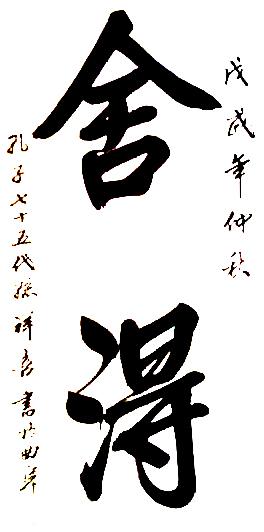 戊戌年仲秋
舍得
孔子七十五代孙祥音书於曲阜